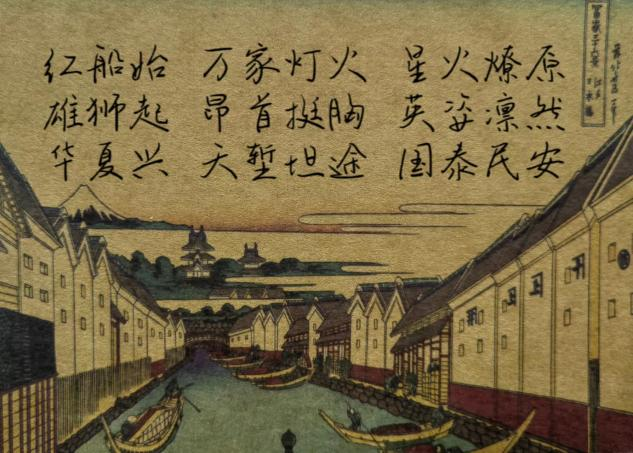 红船始 万家灯火 星火燎原
雄狮起 昂首挺胸 英姿凛然
华夏兴 天堑坦途 国泰民安
冨嶽三十六景 江戸日本橋